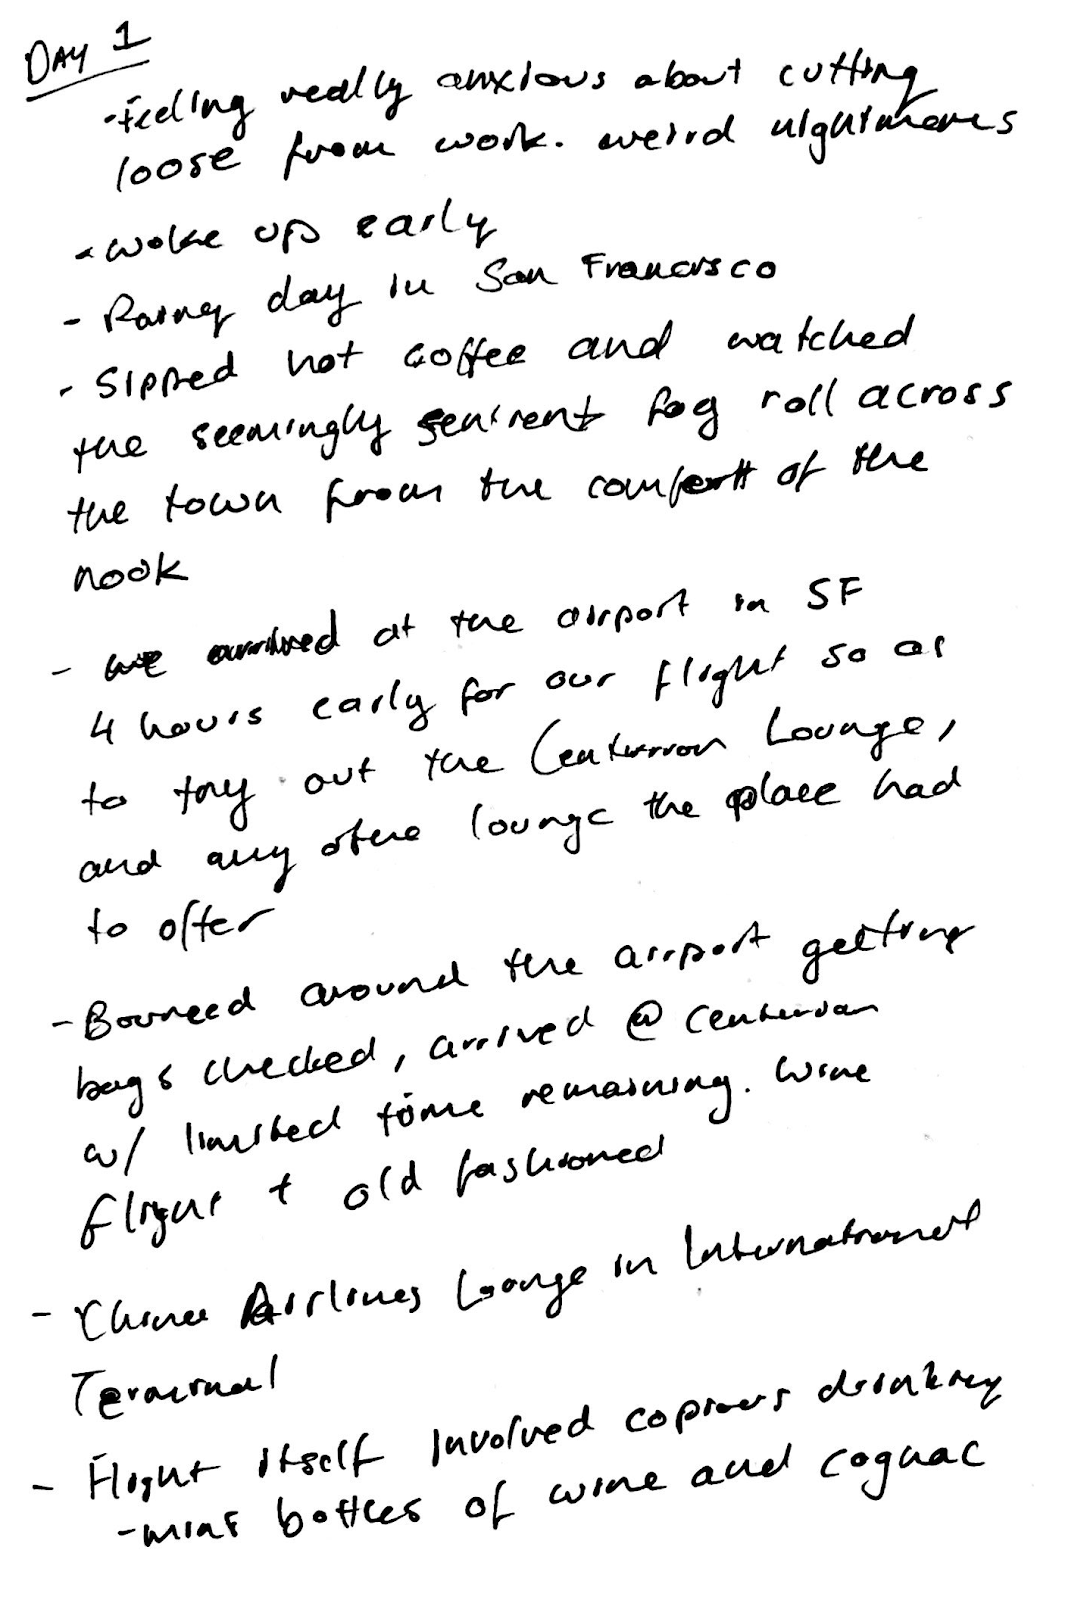 DAY 1
- Feeling really anxious about cutting
loose from work. weird nightmares
- woke up early
- Rainy day in San Francisco
- Sipped hot coffee and watched
the seemingly sentient fog roll across
the town from the comfort of the
nook
- we arrived at the airport in SF
4 hours early for our flight so as
to try out the Centurion Lounge,
and any other lounge the place had
to offer
- Bounced around the airport getting
bags checked, arrived @ Centurion
w/ limited time remaining. Wine
flight + old fashioned
- China Airlines Lounge in International
Terminal
- Flight itself involved copious drinking
- mini bottles of wine and cognac